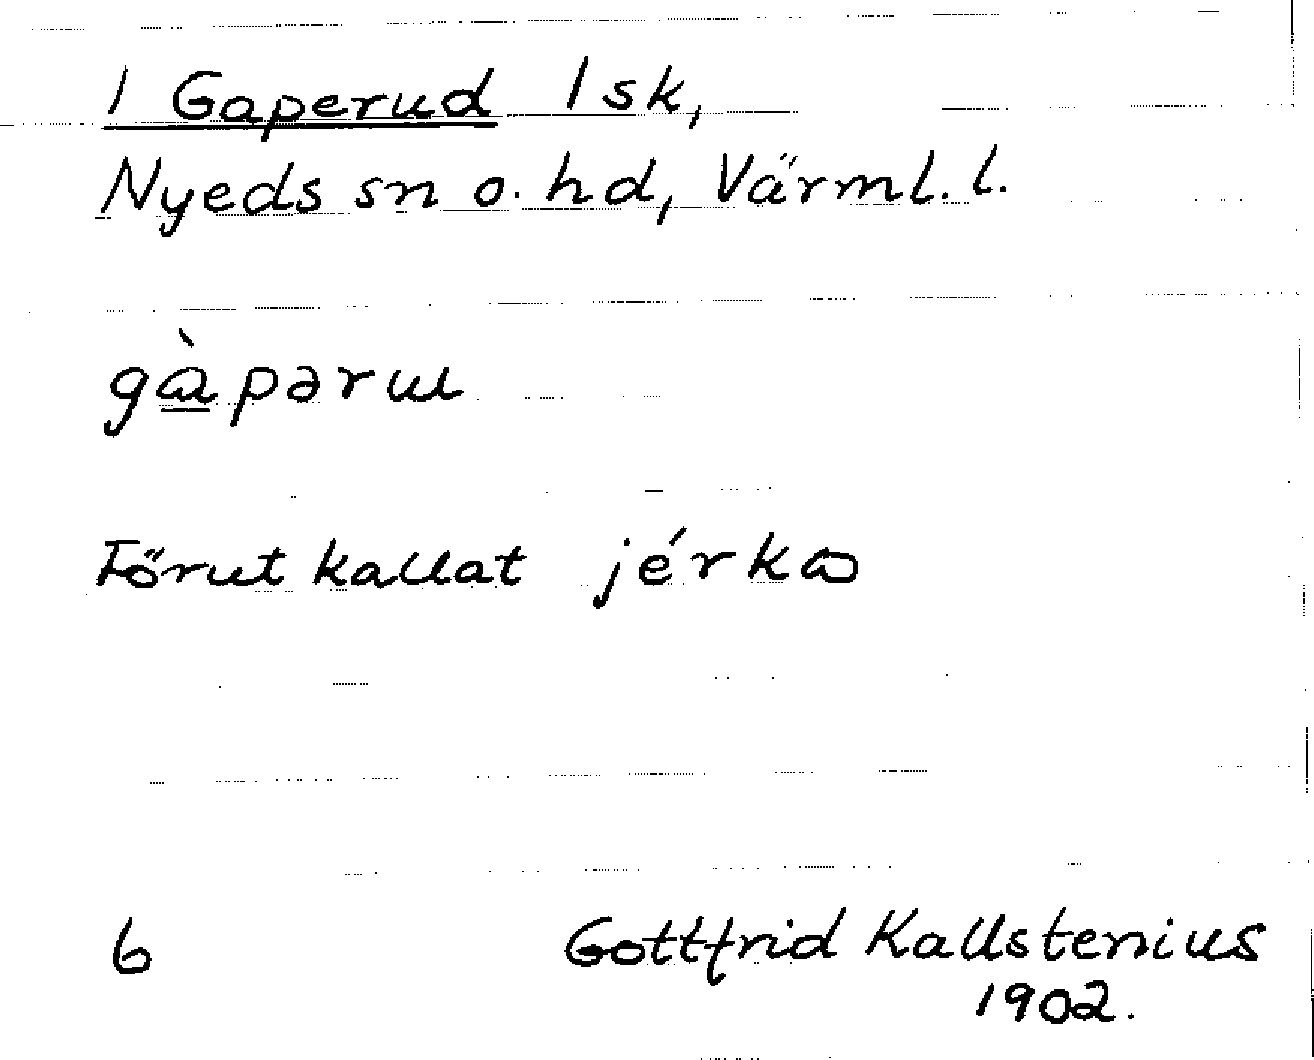 1 Gaperud 1 sk,
Nyeds sn o. hd, Värml. l.
gàpərɯ
Förut kallat jérka
6 Gottfrid Kallstenius
1902.